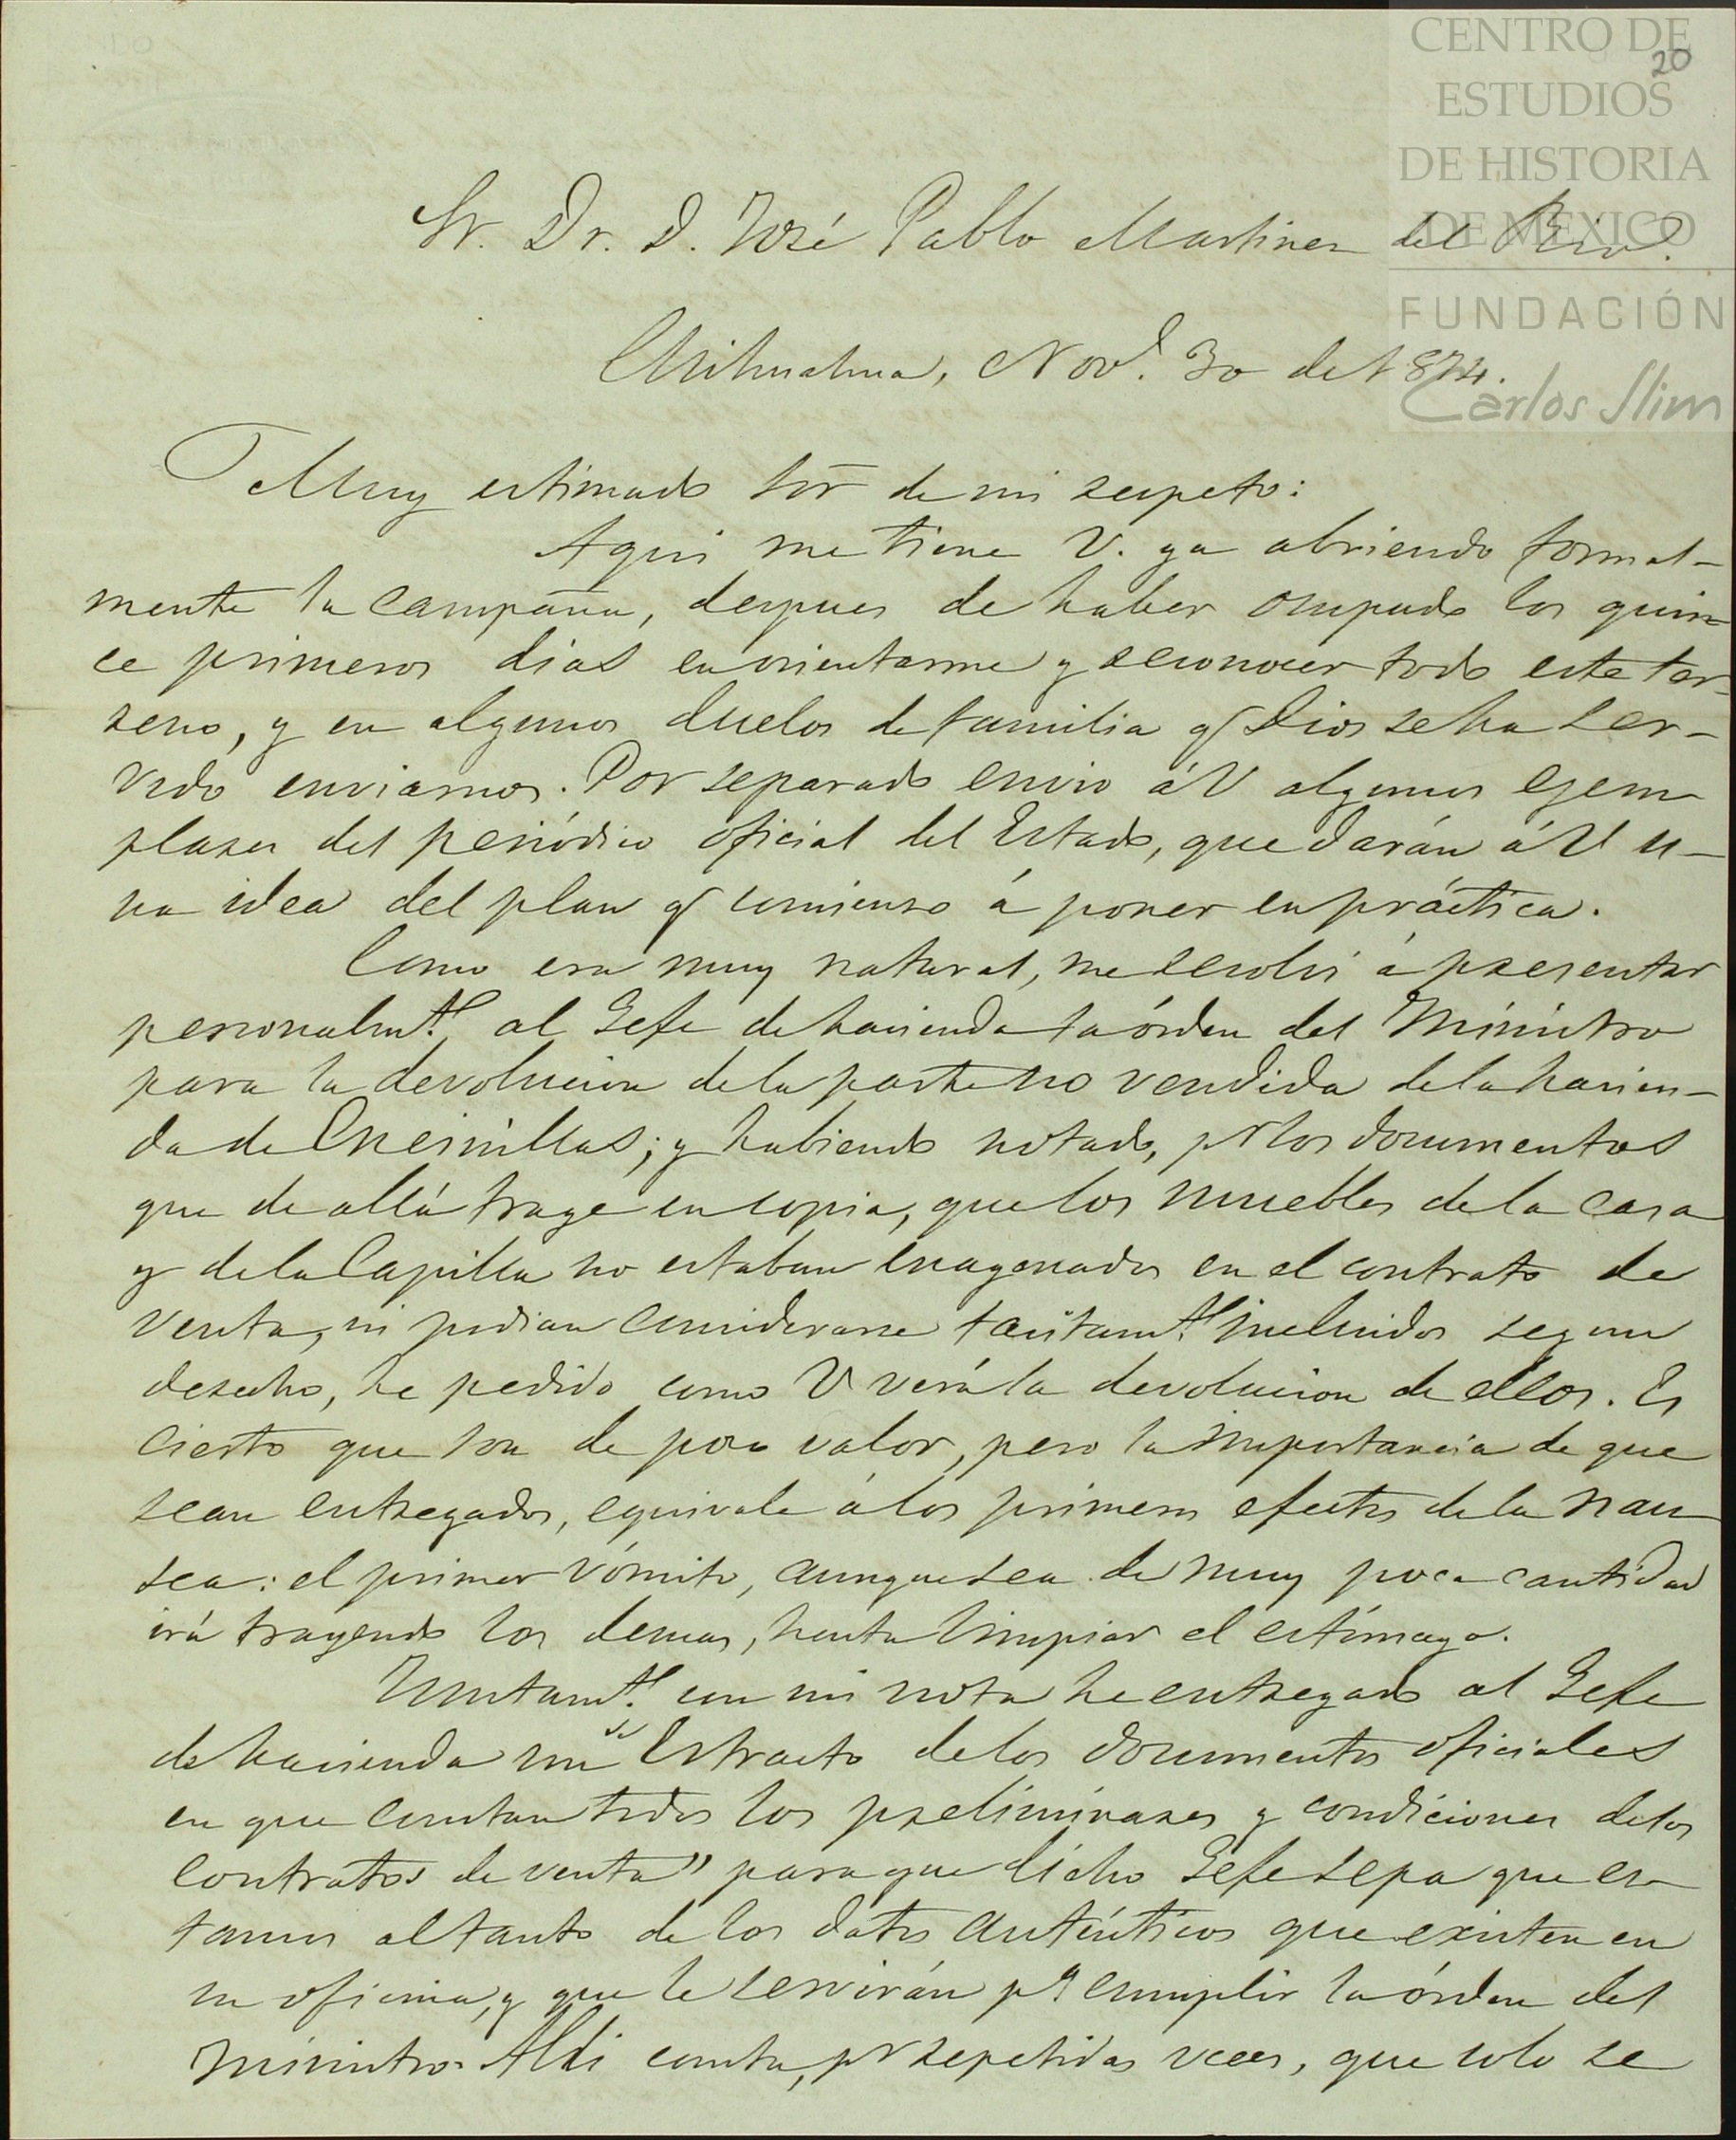 CENTRO DE
20
ESTUDIOS
DE HISTORIA
DE MÉXICO
FUNDACIÓN
Carlos Slim
Sr. Dr. D. José Pablo Martinez del Rio.
Chihuahua, Nov.e 30 de 1874.
Muy estimado Sōr de mi respeto:
Aqui me tiene V. ya abriendo formal-
mente la campaña, despues de haber ocupado los quin-
ce primeros dias en orientarme y reconocer todo este ter-
reno, y en algunos duelos de familia q Dios se ha ser-
vido enviarnos. Por separado envio á V algunos ejem
plares del periódico oficial del Estado, que darán á V u-
na idea del plan q comienso á poner en práctica.
Como era muy natural, me resolví á presentar
personalm.te al Gefe de hacienda la órden del Ministro
para la devolucion de la parte no vendida de la hacien-
da de Encinillas; y habiendo notado, pr los documentos
que de allá trage en copia, que los muebles de la casa
y de la Capilla no estaban enagenados en el contrato de
venta, ni podian considerarse tacitam.te incluidos segun
derecho, he pedido como V verá la devolucion de ellos. Es
cierto que son de poco valor, pero la importancia de que
sean entregados, equivale á los primeros efectos de la nau
sea: el primer vómito, aunque sea de muy poca cantidad
irá trayendo los demas, hasta limpiar el estómago.
Juntam.te con mi nota he entregado al Gefe
de hacienda un "Estracto de los documentos oficiales
en que constan todos los preliminares y condiciones de los
contratos de venta" para que dicho Gefe sepa que es-
tamos al tanto de los datos auténticos que existen en
su oficina, y que le servirán pa cumplir la órden del
Ministro. Alli consta, pr repetidas veces, que solo se